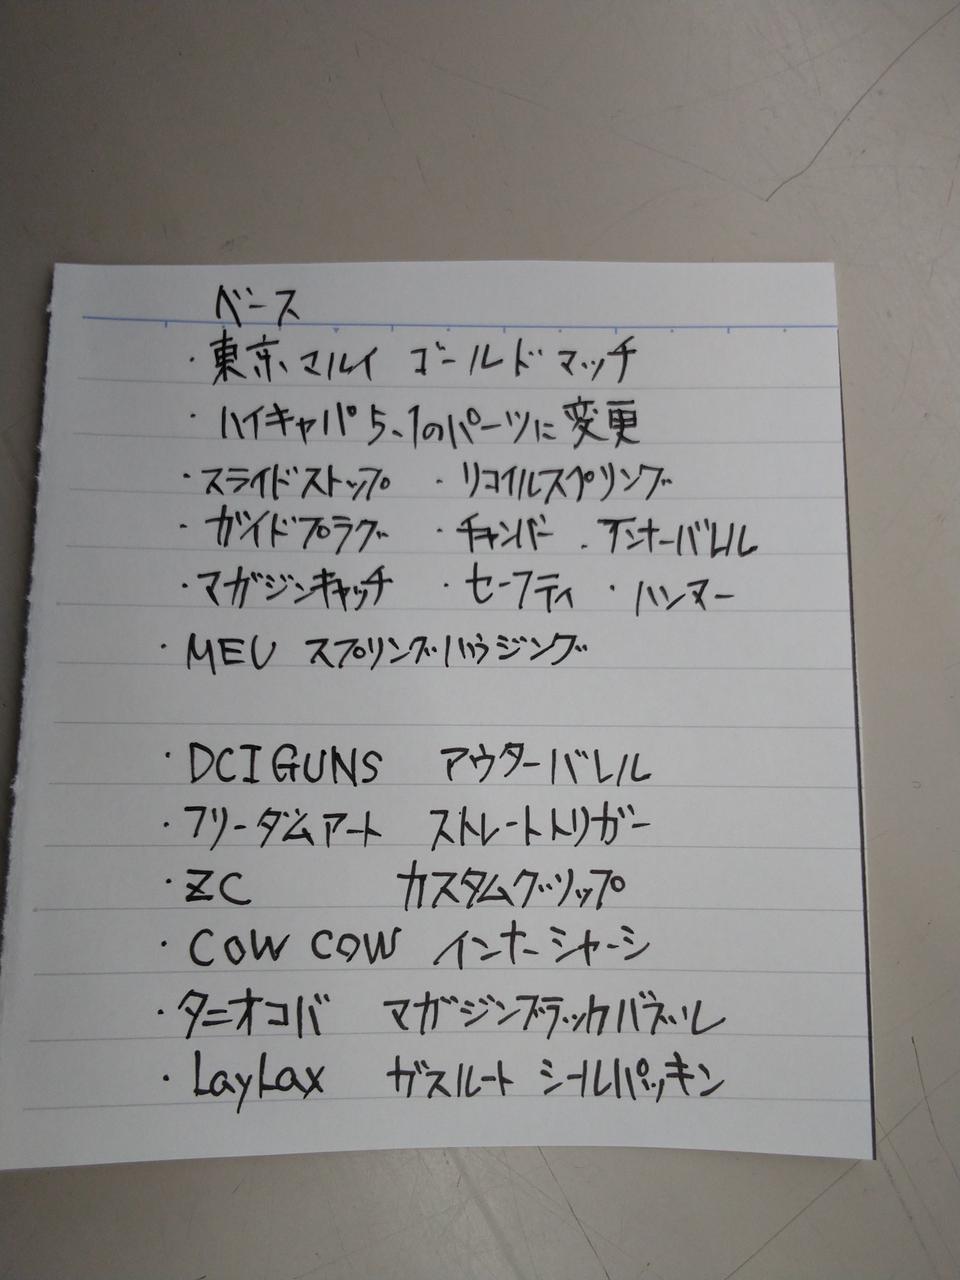 ベース
・東京マルイ ゴールドマッチ
・ハイキャパ5.1のパーツに変更
・スライドストップ ・リコイルスプリング
・ガイドプラグ ・チャンバー ・インナーバレル
・マガジンキャッチ ・セーフティ ・ハンマー
・MEU スプリングハウジング
・DCI GUNS アウターバレル
・フリーダムアート ストレートトリガー
・ZC カスタムグリップ
・COW COW インナーシャーシ
・タニオコバ マガジンブラックバズル
・LayLax ガスルート シールパッキン